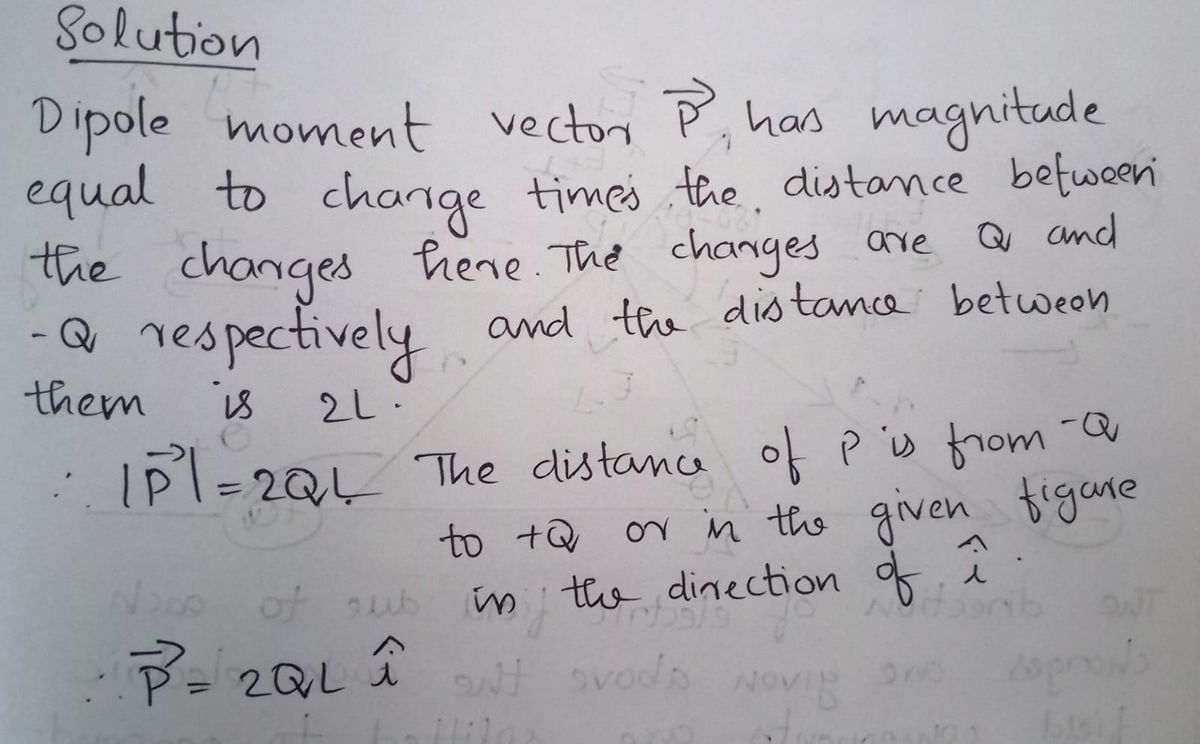 Solution
Dipole moment vector P⃗ has magnitude
equal to charge times the distance between
the charges here. The charges are Q and
-Q respectively and the distance between
them is 2L.
∴ |P⃗| = 2QL The distance of P is from -Q
to +Q or in the given figure
in the direction of î.
∴ P⃗ = 2QL î